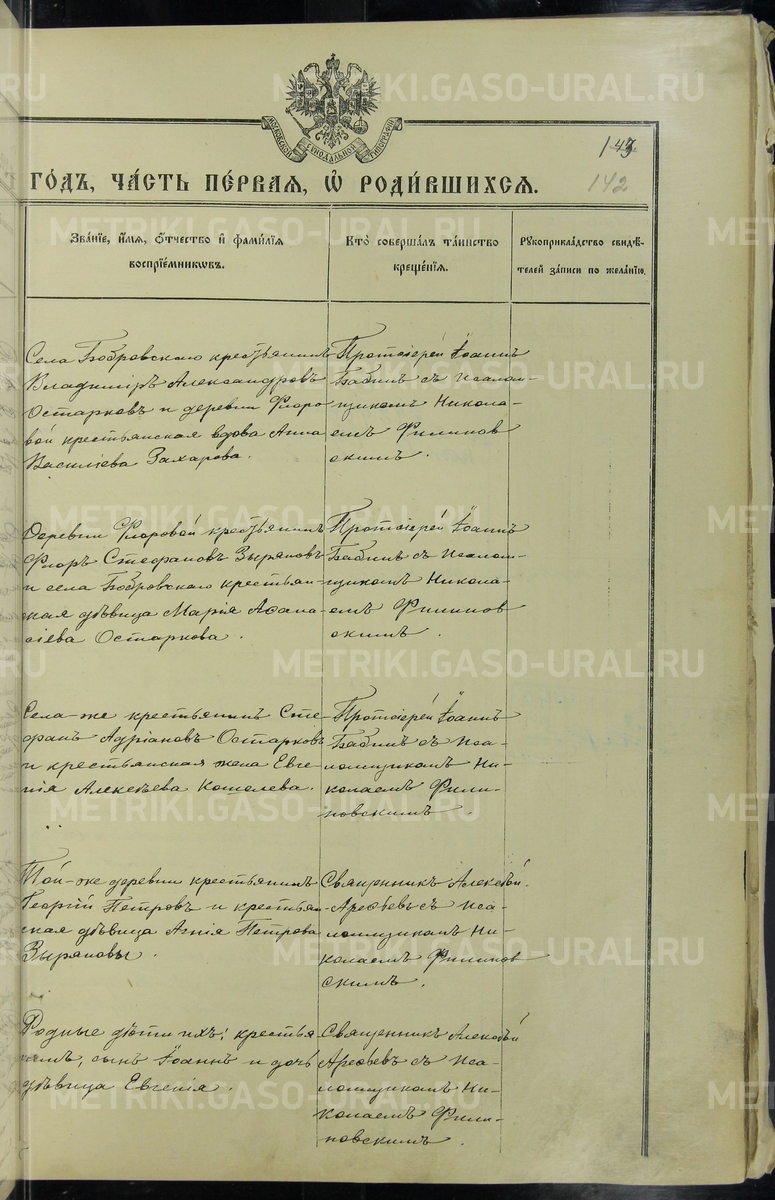 МОСКОВСКОЙ СУНОДАЛЬНОЙ ТИПОГРАФІИ
143
142
ГО́ДЪ, ЧА́СТЬ ПЕ́РВАЯ, Ѽ РОДИ́ВШИХСЯ.
Зва́нїе, и́мя, ѻ́тчество и҆ фами́лїя
воспрїе́мникѡвъ.
Кто̀ соверша́лъ та́инство
креще́нїѧ.
Рукоприкла́дство свидѣ́-
телей за́писи по жела́нїю.
Села Бобровскаго крестьянинъ
Владиміръ Александровъ
Остарковъ и деревни Фроло-
вой крестьянская вдова Анна
Василіева Захарова.
Протоіерей Іоаннъ
Бабинъ съ псалом-
щикомъ Никола-
емъ Филипов
скимъ.
Деревни Фроловой крестьянинъ
Флоръ Стефановъ Зыряновъ
и села Бобровскаго крестьян-
ская дѣвица Марія Аѳана-
сіева Остаркова.
Протоіерей Іоаннъ
Бабинъ съ псалом-
щикомъ Никола-
емъ Филипов
скимъ.
Села-же крестьянинъ Сте
фанъ Адріановъ Остарковъ
и крестьянская жена Евге-
нія Алексѣева Кошелева.
Протоіерей Іоаннъ
Бабинъ съ пса-
ломщикомъ Ни-
колаемъ Фили-
повскимъ.
Той-же деревни крестьянинъ
Георгій Петровъ и крестьян
ская дѣвица Агнія Петрова
Зыряновы.
Священникъ Алексѣй
Арефьевъ съ пса-
ломщикомъ Ни-
колаемъ Филипов
скимъ.
Родные дѣти ихъ: крестья
нинъ, сынъ Іоаннъ и дочь
дѣвица Евгенія.
Священникъ Алексѣй
Арефьевъ съ пса-
ломщикомъ Ни-
колаемъ Фили-
повскимъ.
METRIKI.GASO-URAL.RU